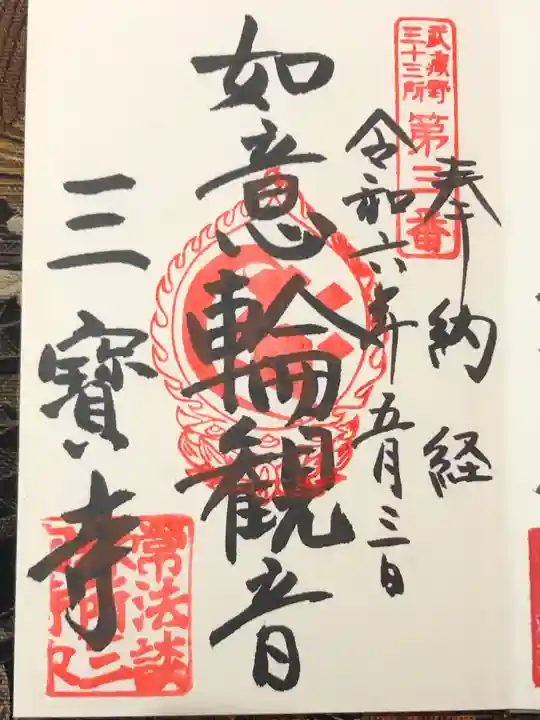 武蔵野
三十三所
第三番
奉納経
令和六年五月三日
如意輪観音
三寳寺
常法談